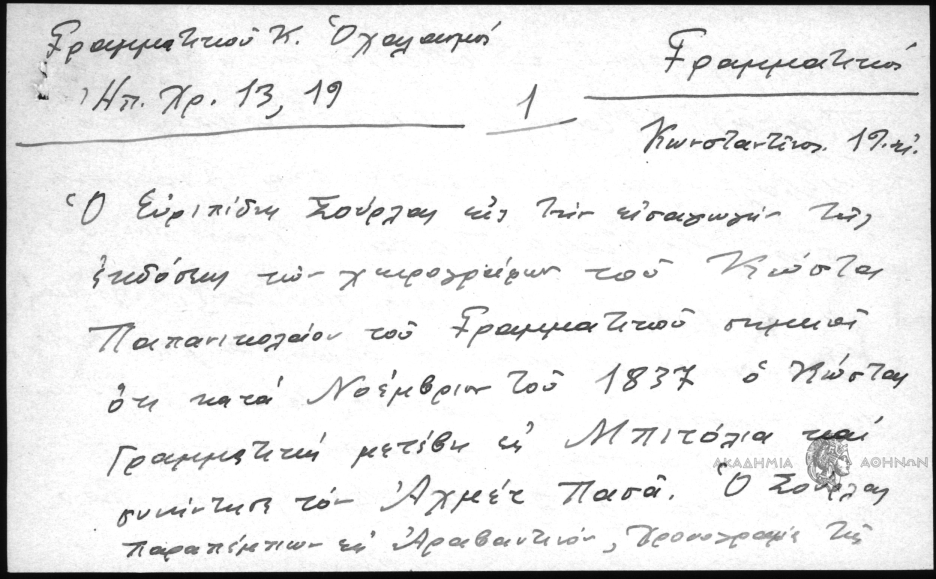 Γραμματικού Κ. Ὁ χαλασμός
Ἠπ. Χρ. 13, 19
1
Γραμματικός
Κωνσταντίνος. 19. αἰ.
Ὁ Εὐριπίδης Σούρλας εἰς τὴν εἰσαγωγὴν τῆς
ἐκδόσεως τῶν χειρογράφων τοῦ Κώστα
Παπανικολάου τοῦ Γραμματικοῦ σημειοῖ
ὅτι κατά Νοέμβριον τοῦ 1837 ὁ Κώστας
Γραμματικὸς μετέβη εἰς Μπιτόλια καί
συνήντησε τόν Ἀχμέτ Πασᾶ. Ὁ Σούρλας
παραπέμπων εἰς Ἀραβαντινόν, Χρονογραφία τῆς
ΑΚΑΔΗΜΙΑ ΑΘΗΝΩΝ